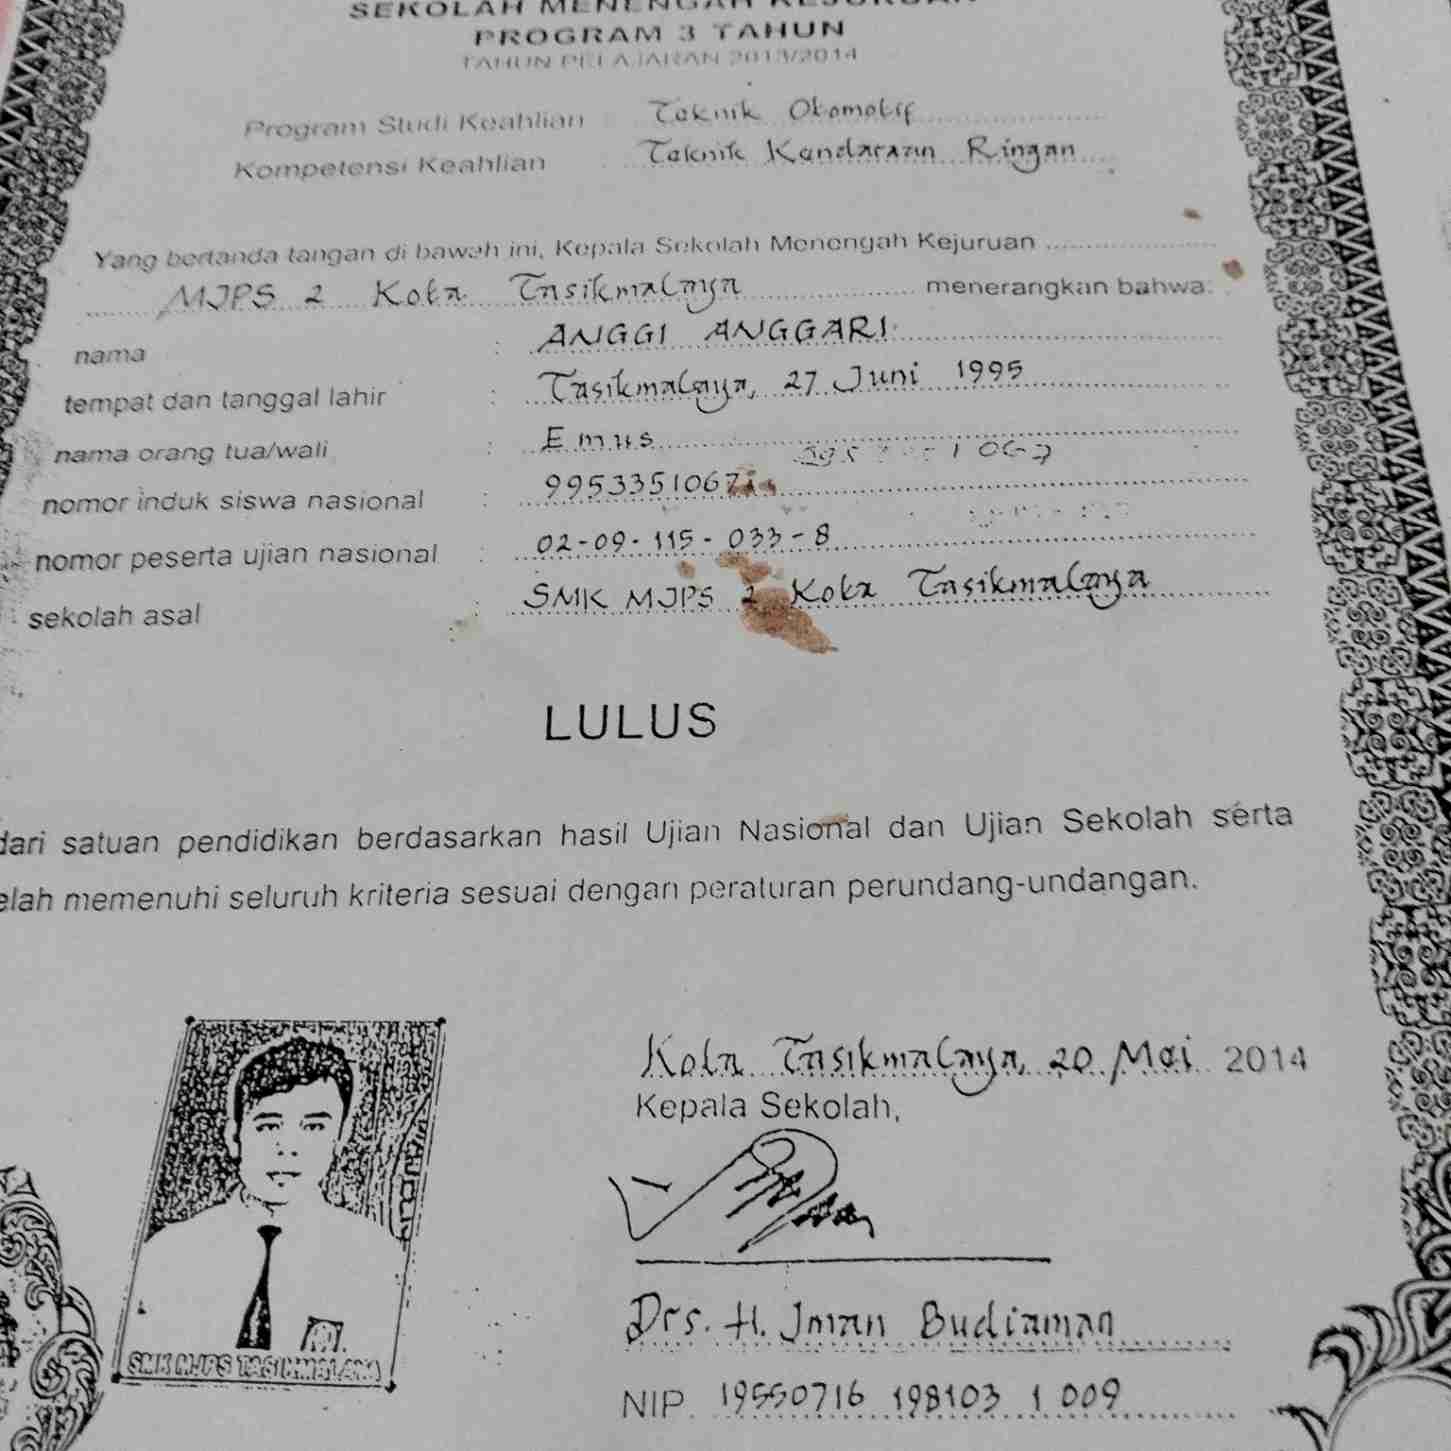 SEKOLAH MENENGAH KEJURUAN
PROGRAM 3 TAHUN
TAHUN PELAJARAN 2013/2014
Program Studi Keahlian Teknik Otomotif
Kompetensi Keahlian : Teknik Kendaraan Ringan
Yang bertanda tangan di bawah ini, Kepala Sekolah Menengah Kejuruan
MJPS 2 Kota Tasikmalaya menerangkan bahwa:
nama : ANGGI ANGGARI
tempat dan tanggal lahir : Tasikmalaya, 27 Juni 1995
nama orang tua/wali : Emus
nomor induk siswa nasional : 9953351067
nomor peserta ujian nasional : 02-09-115-033-8
sekolah asal : SMK MJPS 2 Kota Tasikmalaya
LULUS
dari satuan pendidikan berdasarkan hasil Ujian Nasional dan Ujian Sekolah serta
elah memenuhi seluruh kriteria sesuai dengan peraturan perundang-undangan.
Kota Tasikmalaya, 20 Mei 2014
Kepala Sekolah,
SMK MJPS TASIKMALAYA
Drs. H. Iman Budiaman
NIP. 19550716 198103 1 009